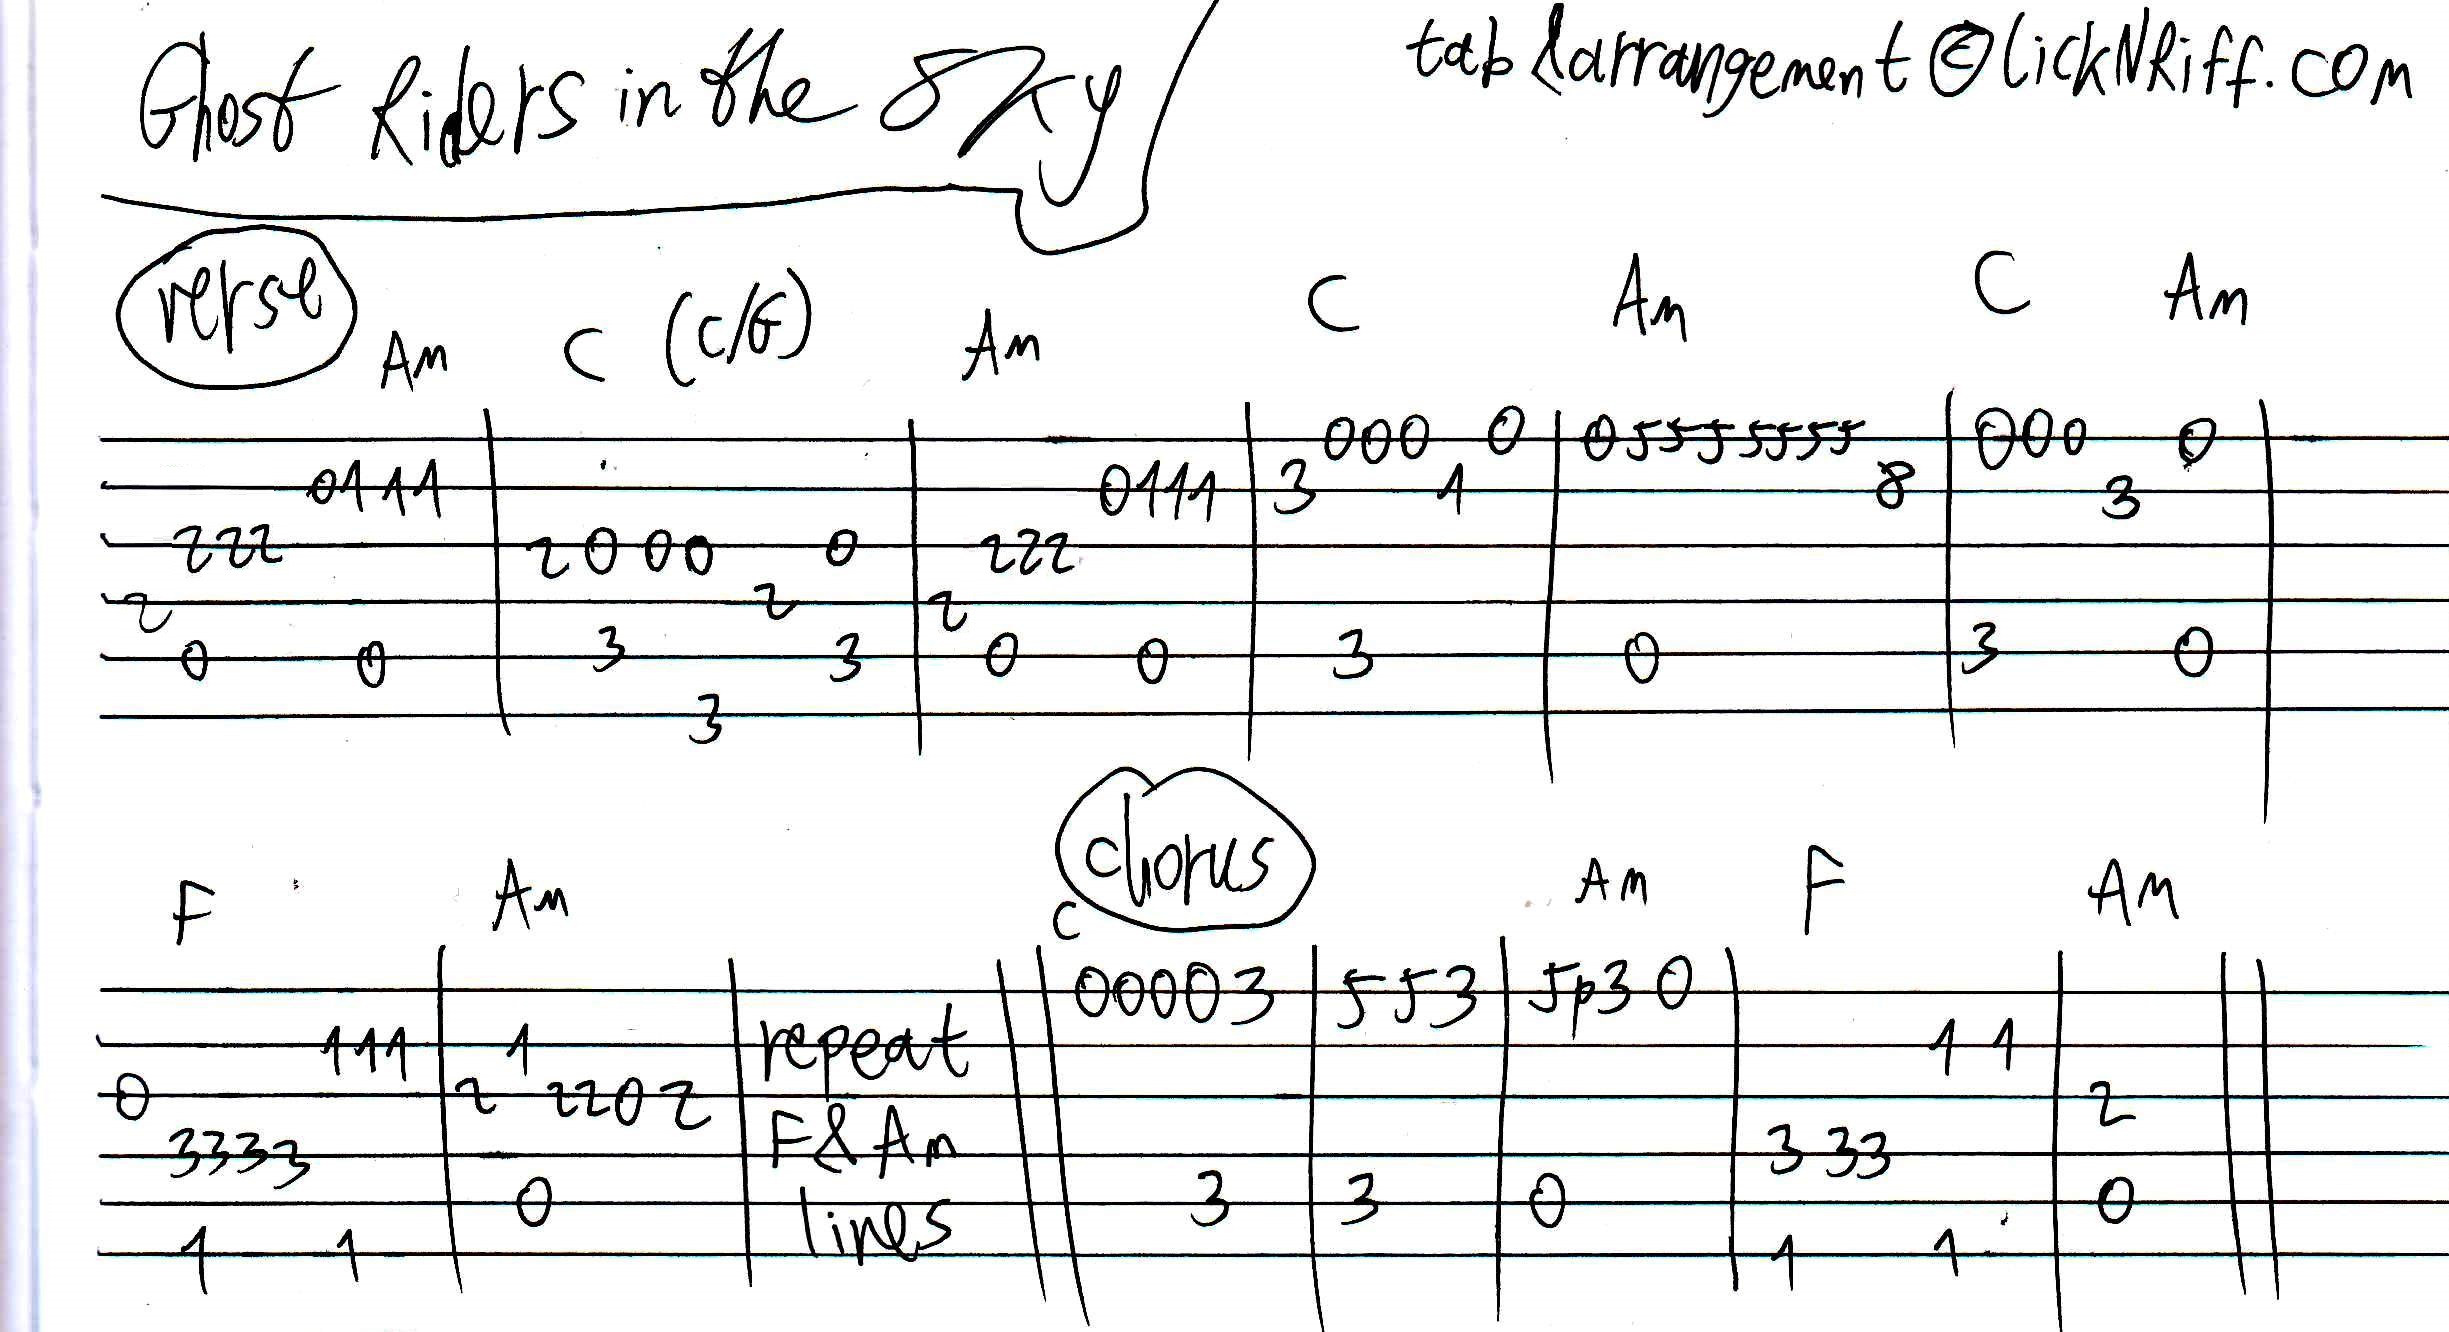 Ghost Riders in the Sky
tab & arrangement © lickNRiff.com
verse
Am C (C/G) Am C Am C Am
000 0 05555555 000 0
0111 0111 3 1 8 3
222 2000 0 222
2 2 2
0 0 3 3 0 0 3 0 3 0
3
chorus
F Am C Am F Am
00003 553 5p3 0
111 1 repeat 1 1
0 2 220 2 2
3333 F & Am 3 33
0 lines 3 3 0 0
1 1 1 1